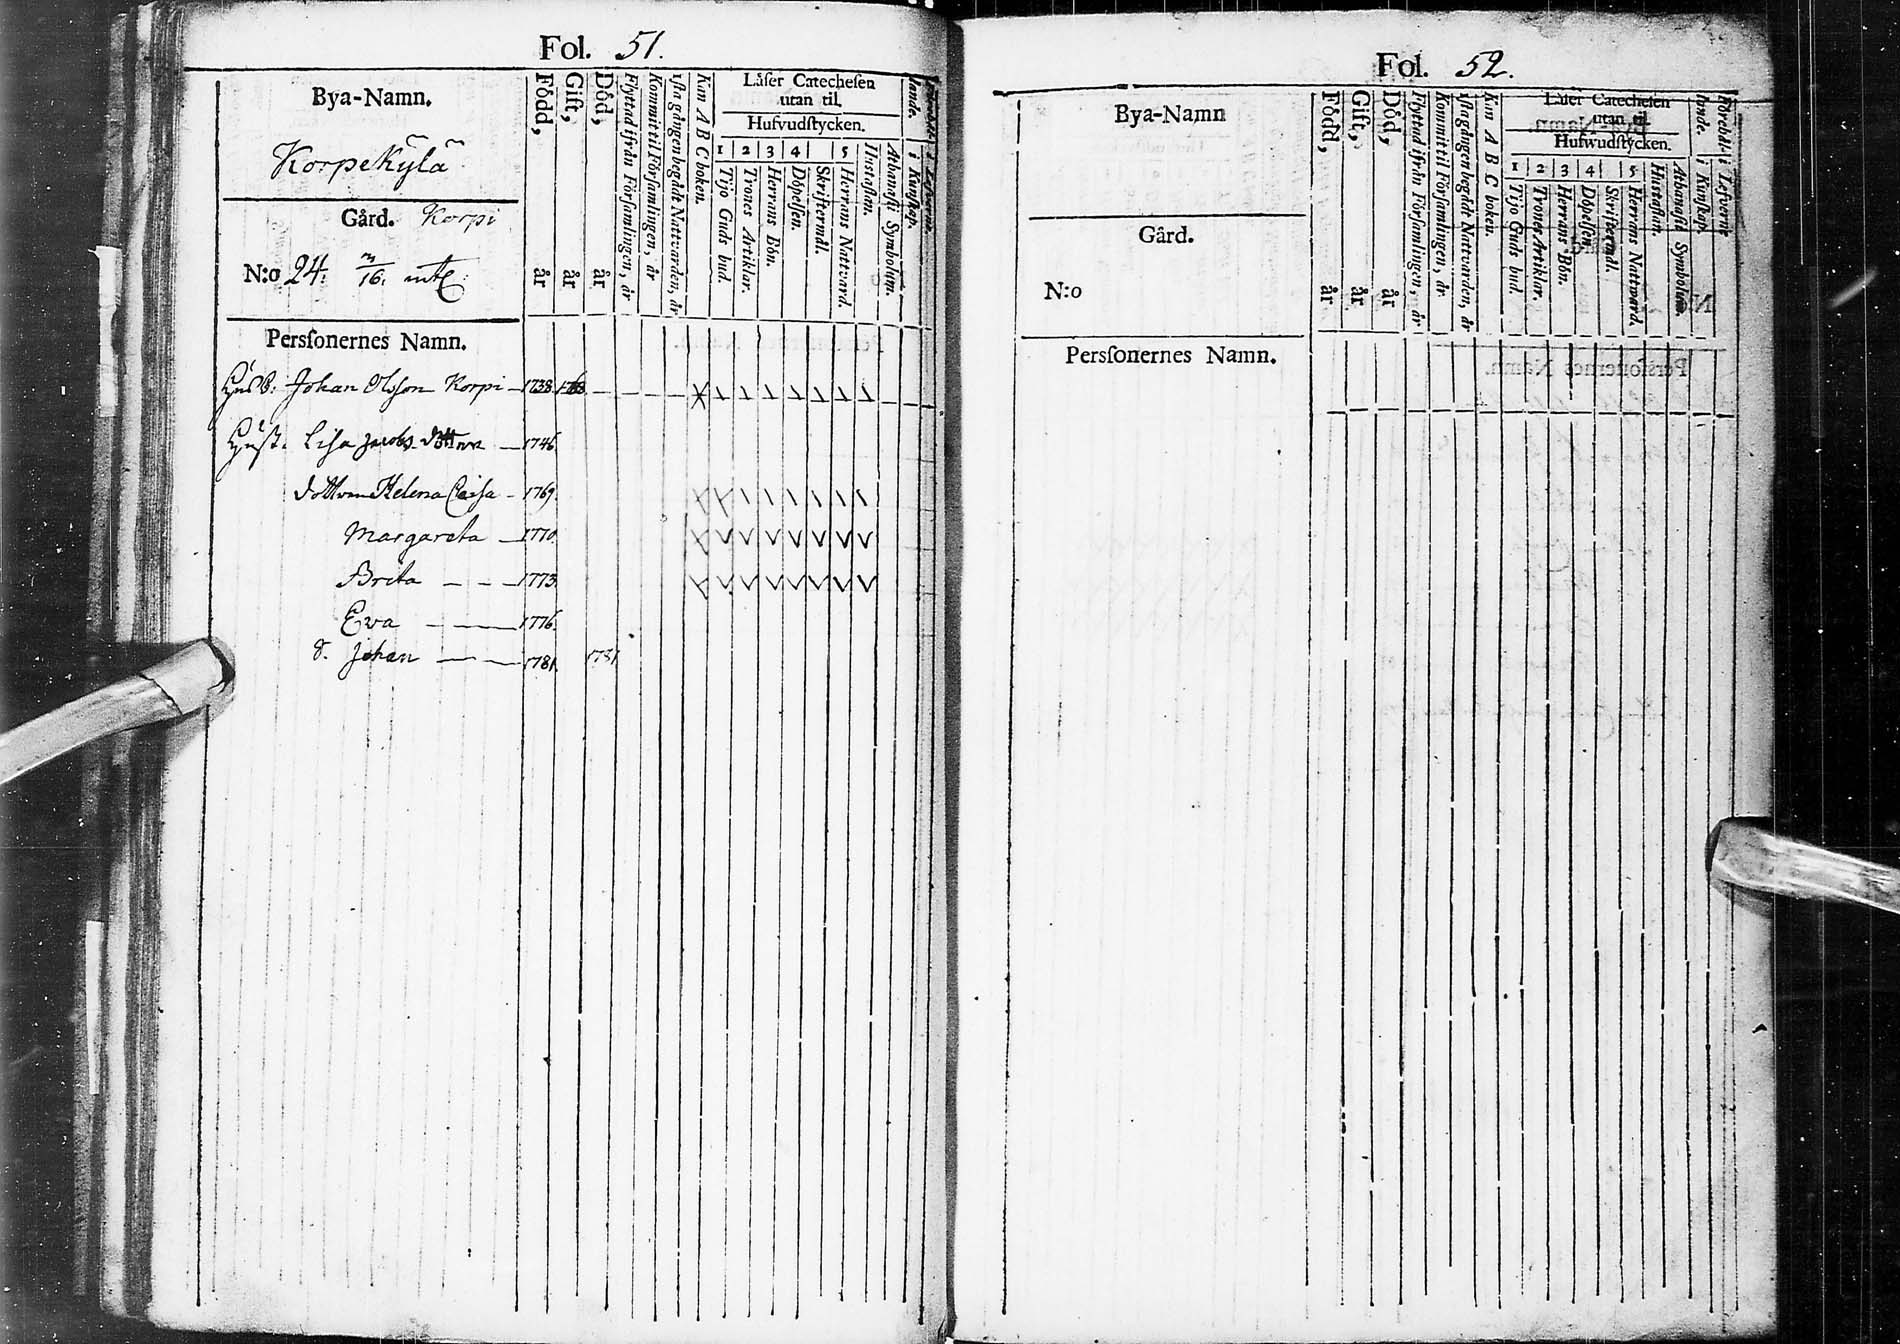 Fol. 51.
Bya-Namn.
Korpekylä
Gård. Korpi
N:o 24. 3/16. mtl
Personernes Namn.
Född, år
Gift, år
Död, år
Flyttad ifrån Församlingen, år
Kommit til Församlingen, år
1sta gången begådt Nattvarden, år
Kan A B C boken.
Låser Catechesen
utan til.
Hufvudstycken.
1 2 3 4 5
Tijo Guds bud.
Trones Artiklar.
Herrans Bön.
Döpelsen.
Skriftermål.
Herrans Nattvard.
Hustaflan.
Athanasii Symbolum.
i Kunskap.
i Lefverne.
Husb: Johan Olsson Korpi 1738
Hust. Lisa Jacobs dotter 1746
dottren Helena Caisa 1769
Margareta 1770
Brita 1773
Ewa 1776
d. Johan 1781 1781
Fol. 52.
Bya-Namn
Gård.
N:o
Personernes Namn.
Född, år
Gift, år
Död, år
Flyttad ifrån Församlingen, år
Kommit til Församlingen, år
1sta gången begådt Nattvarden, år
Kan A B C boken.
Låser Catechesen
utan til
Hufwudstycken.
1 2 3 4 5
Tijo Guds bud.
Trones Artiklar.
Herrans Bön.
Döpelsen.
Skriftermål.
Herrans Nattward.
Hustaflan.
Athanasii Symbolum
i Kunskap.
i Lefverne